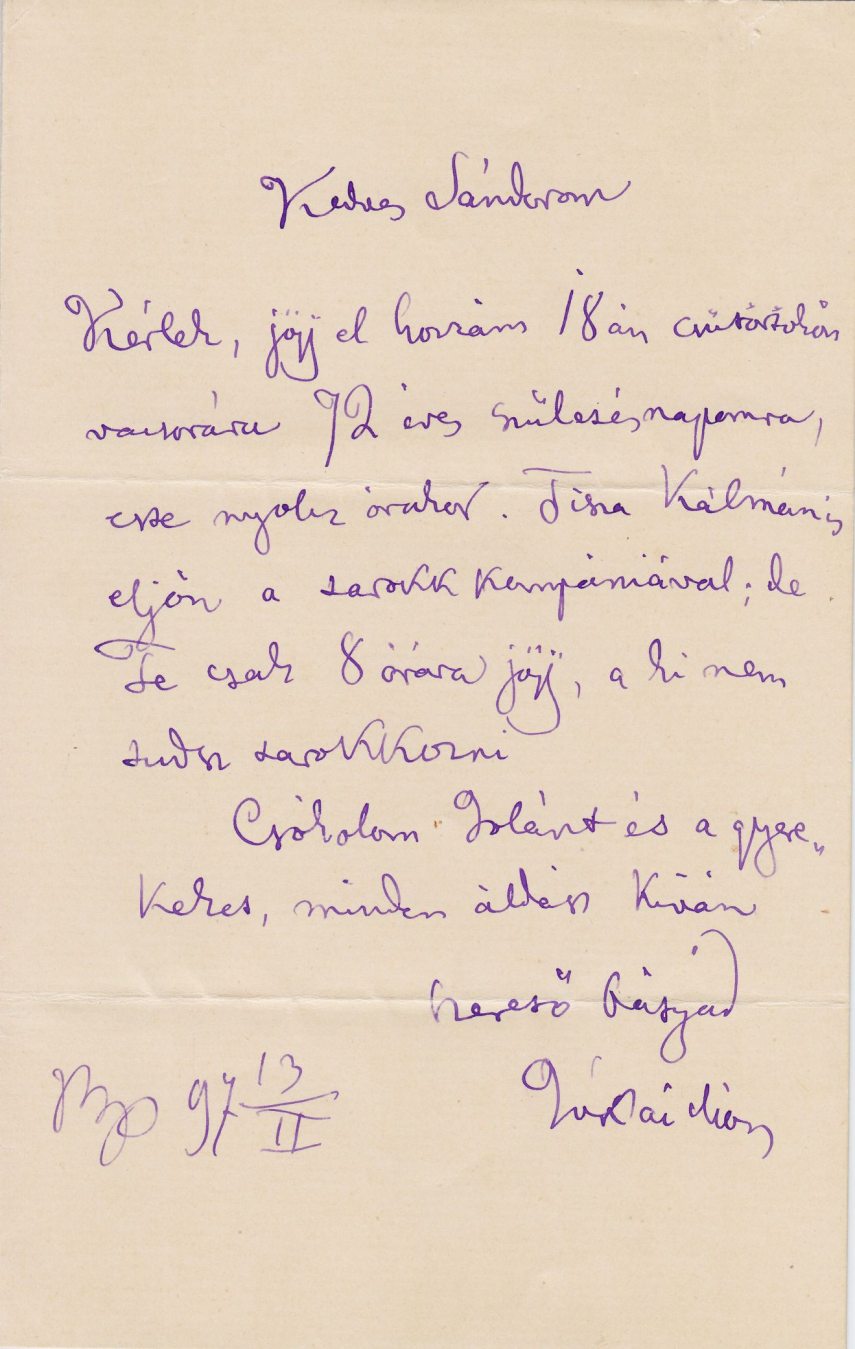 Kedves Sándorom
Kérlek, jöjj el hozzám 18án csütörtökön
vacsorára 72 éves születésnapomra,
este nyolcz órakor. Tisza Kálmán is
eljön a tarokk kompániával; de
Te csak 8 órára jöjj, a ki nem
tudsz tarokkozni
Csókolom Jolánt és a gyere„
keket, minden áldást kíván
szerető bátyád
Jókai Mór
Bp 97 13/II